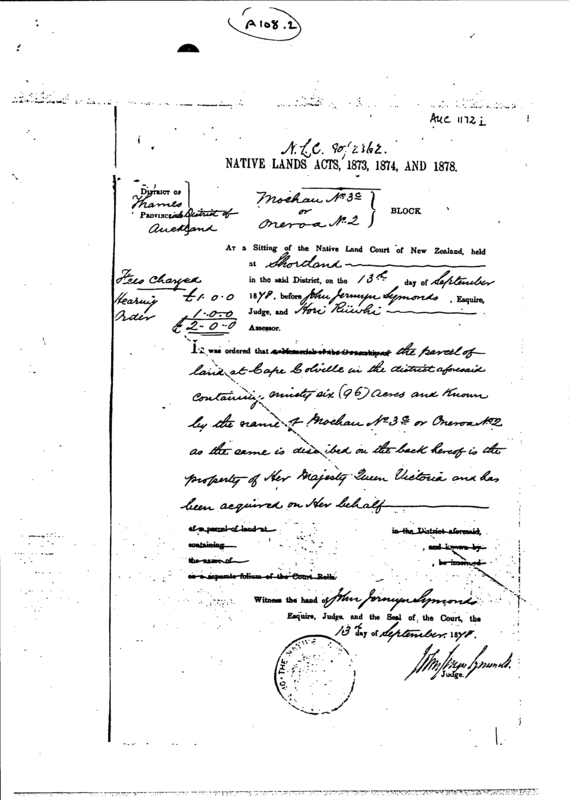 A108.2
AUC 1172 i
N.L.C. 90/2362.
NATIVE LANDS ACTS, 1873, 1874, AND 1878.
DISTRICT OF
Thames
PROVINCIAL District of
Auckland
Moehau No 3c
or
Oneroa No. 2
BLOCK
AT a Sitting of the Native Land Court of New Zealand, held
at Shortland
in the said District, on the 13th day of September
1878, before John Jermyn Symonds, Esquire,
Judge, and Hori Riiwhi
Assessor.
Fees Charged
Hearing £1.0.0
Order 1.0.0
£ 2-0-0
It was ordered that a Memorial of the Ownership of the parcel of
land at Cape Colville in the district aforesaid
containing ninety six (96) Acres and known
by the name of Moehau No 3c or Oneroa No 2
as the same is described on the back hereof is the
property of Her Majesty Queen Victoria and has
been acquired on Her behalf
of a parcel of land at in the District aforesaid,
containing , and known by
the name of , be inserted
on a separate folium of the Court Rolls.
Witness the hand of John Jermyn Symonds
Esquire, Judge, and the Seal of the Court, the
13th day of September, 1878.
John Jermyn Symonds.
Judge.
THE NATIVE